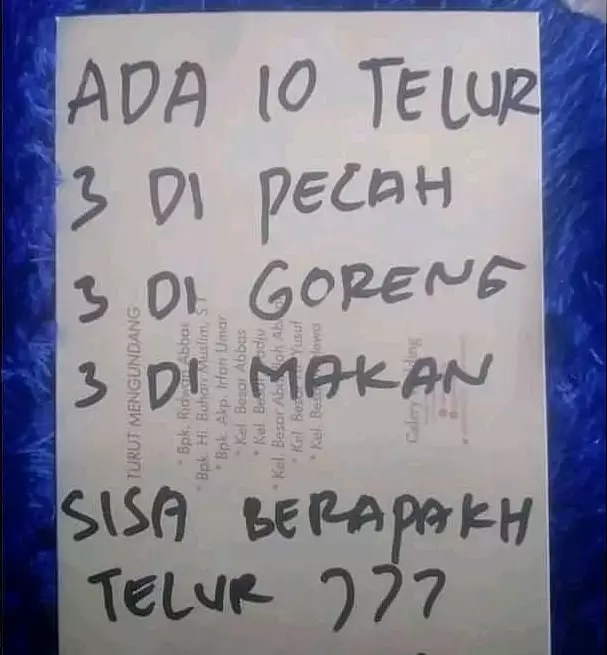 ADA 10 TELUR
3 DI PECAH
3 DI GORENG
3 DI MAKAN
SISA BERAPAKH
TELUR ???
TURUT MENGUNDANG
* Bpk. Abbas
* Bpk. Hi. Burhan Muslim, S.T
* Bpk. Akp. Irfan Umar
* Kel. Besar Abbas
* Kel.
* Kel. Besar
* Kel. Yusuf
* Kel.